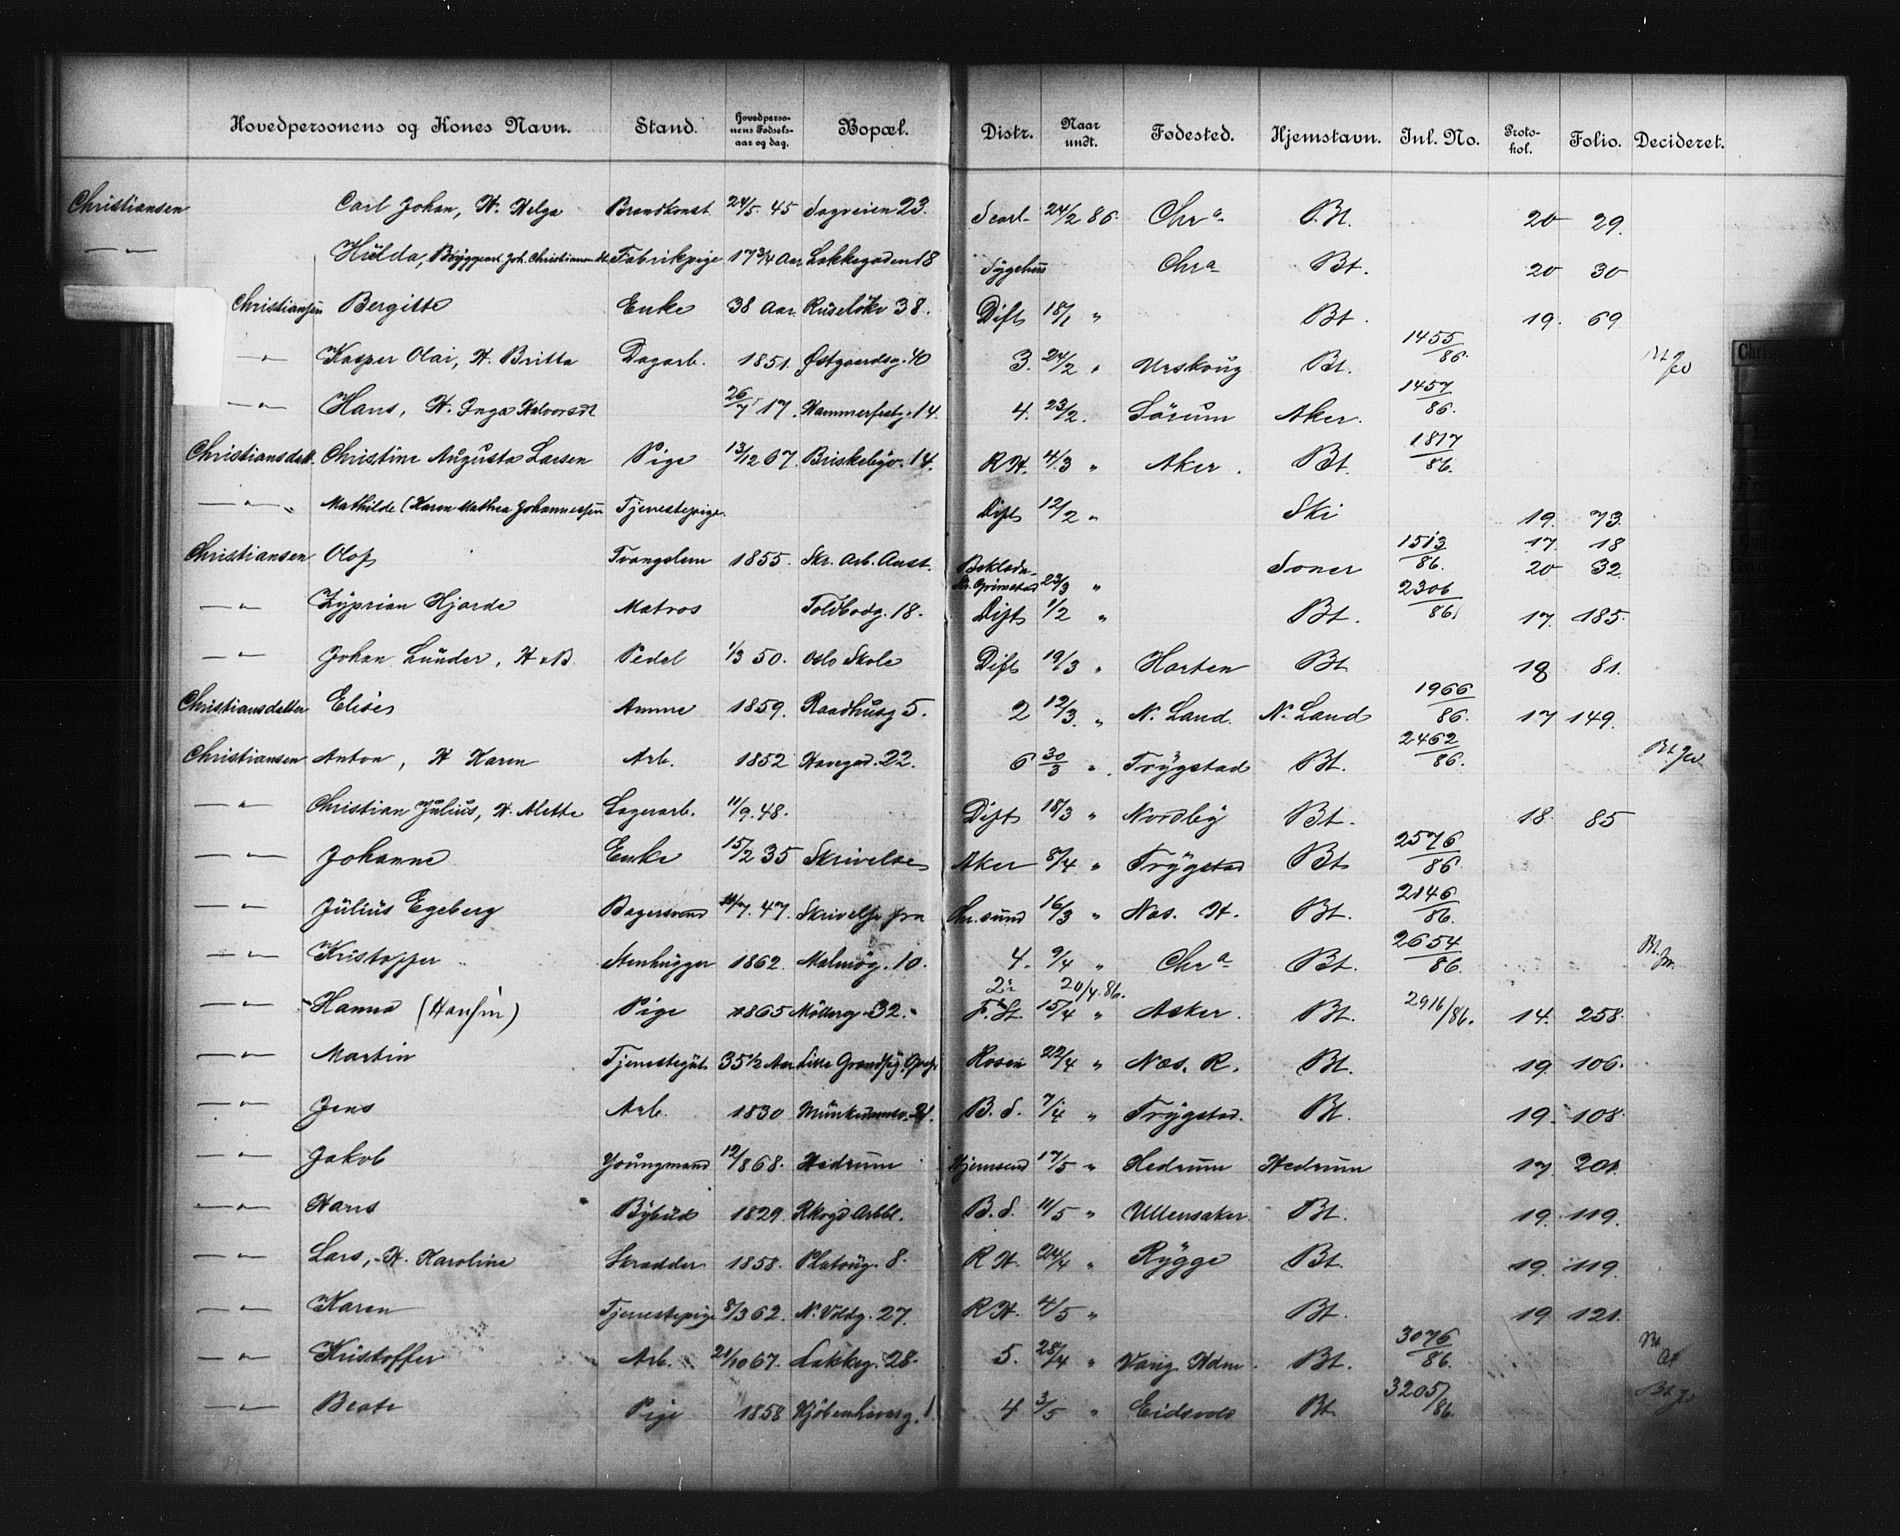 Hovedpersonens og Kones Navn. Stand. Hovedpersonens Fødselsaar og dag. Bopæl. Distr. Naar undt. Fødested. Hjemstavn. Inl. No. Protokol. Folio. Decideret.
Christiansen Carl Johan, H. Helga Brandkonst. 24/5 45 Sagveien 23. 24/2 86. Chra Bt. 20 29.
— " — Hulda, Fabrikpige 17 3/4 Aar Lakkegaden 18 Sygehus Chra Bt. 20 30
Christiansen Bergitte Enke 38 Aar Ruseløkv 38. Dift 18/1 " Bt. 19. 69
— " — Kasper Olai, H. Britta Dagarb. 1851. Østgaardsg. 40 3. 24/2 " Urskoug Bt. 1455/86.
— " — Hans, H. Inga Halvorsdt 26/7 17. Hammerfestg. 14. 4. 23/2. Sørum Aker. 1457/86.
Christiansdatt. Christine Augusta Larsen Pige 13/12 67. Briskebyv. 14. R H. 4/3 " Aker. Bt. 1817/86.
— " — Mathilde (Karen Mathea Johannessen Tjenestepige. Dift 12/2 " Ski 19. 73.
Christiansen Olof Tvangslem 1855. Skr. Arb. Anst. Soner 1513/86. 17. 18
20 32.
— " — Zyprian Hjorde Matros Toldbodg. 18. Dift 1/2 " Bt. 2306/86 17. 185.
— " — Johan Lunder, Pedel 1/3 50. Oslo Skole Dift 19/3 " Horten Bt 18 81.
Christiansdatter Elise Amme 1859. Raadhusg 5. 2 12/3. " N. Land. N. Land 1966/86. 17 149.
Christiansen Anton, H Karen Arb. 1852 Havegad. 22. 6 30/3 " Trygstad Bt. 2462/86.
— " — Christian Julius, H. Alette Lagerarb. 11/9. 48. Dift 18/3 " Nordby Bt. 18. 85
— " — Johanne Enke 15/2 35 Skrivelse Aker 8/4 " Trygstad Bt 2576/86
— " — Julius Egeberg Bagersvend 47. Skrivelse fra Chr.sund 16/3 " Nes. H. Bt. 2146/86.
— " — Kristoffer Stenhugger 1862. Malmøg. 10. 4. 9/4 " Chra Bt. 2654/86.
— " — Hanna (Hansen) Pige 1865 Møllerg 32. 20/4 86. 15/4 " Asker. Bt. 2916/86. 14. 258.
— " — Martin Tjenestegut 35 1/2 Aar 22/4 " Nes. R. Bt. 19. 106.
— " — Jens Arb. 1830 B. S. 7/4 " Trygstad. Bt. 19. 108.
— " — Jakob Youngmand 12/8 68. Hedrum Hjemsend 17/5 " Hedrum Hedrum 17. 201.
— " — Hans Bybud 1829. B. S. 11/5 " Ullensaker. Bt. 19. 119.
— " — Lars, H. Karoline Skrædder 1858. Platoug. 8. R H. 24/4 " Rygge Bt. 19. 119.
— " — Karen Tjenestepige 8/3 62. N. Voldg. 27. R H. 4/5 " Bt. 19 121.
— " — Kristoffer Arb. 21/10 67. Lakkeg. 28. 5. 28/4 " Bt. 3076/86.
— " — Beate Pige 1858 Kjøbenhavng. 1. 4 3/5 " Eidsvold Bt. 3205/86.